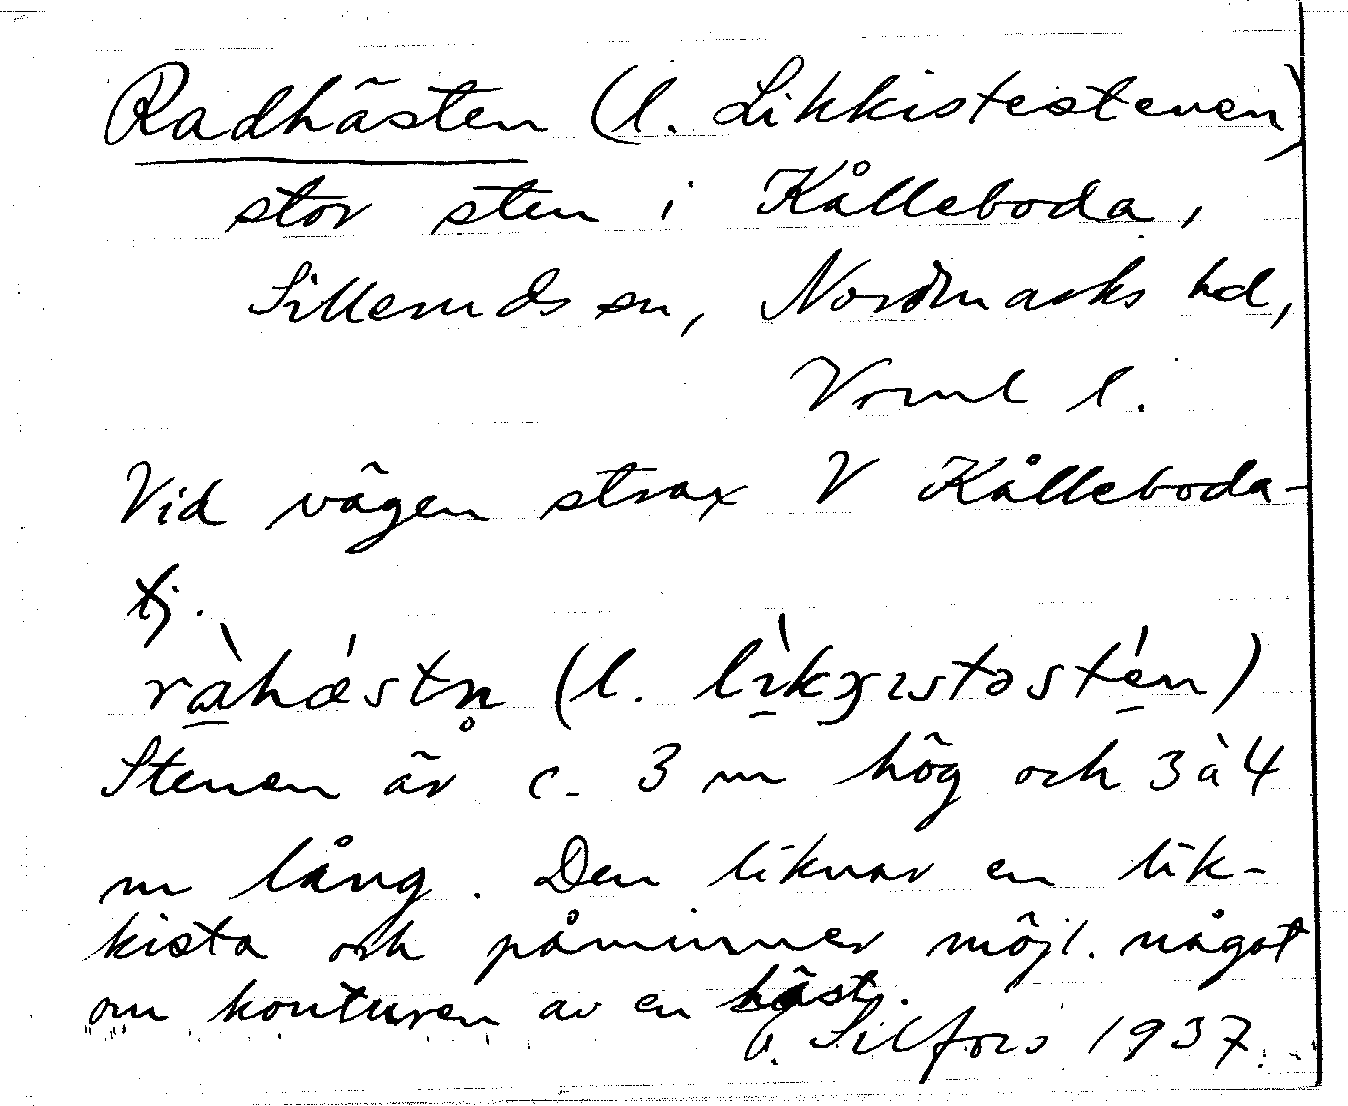 Radhästen (l. Likkistestenen)
stor sten i Kålleboda,
Silleruds sn, Nordmarks hd,
Vrml l.
Vid vägen strax V Kålleboda-
tj.
ràhǽstn̥ (l. lìkχıstəstén)
Stenen är c. 3 m hög och 3 à 4
m lång. Den liknar en lik-
kista och påminner möjl. något
om konturen av en häst.
Silfors 1937.